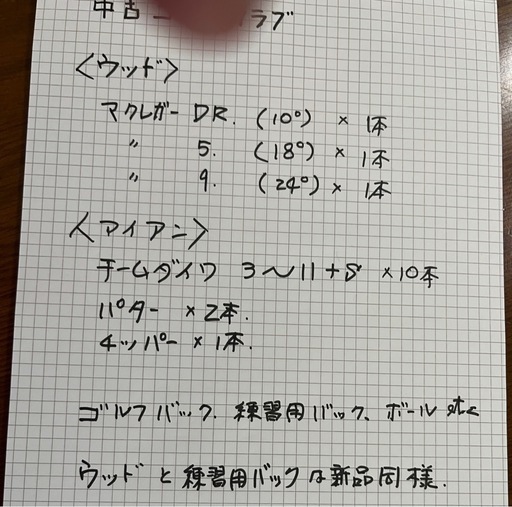 中古 ラブ
〈ウッド〉
マクレガー DR. (10°) × 1本
〃 5. (18°) × 1本
〃 9. (24°) × 1本
〈アイアン〉
チームダイワ 3〜11+S ×10本
パター ×2本.
チッパー ×1本.
ゴルフバック. 練習用バック、ボール etc
ウッドと練習用バックは新品同様.